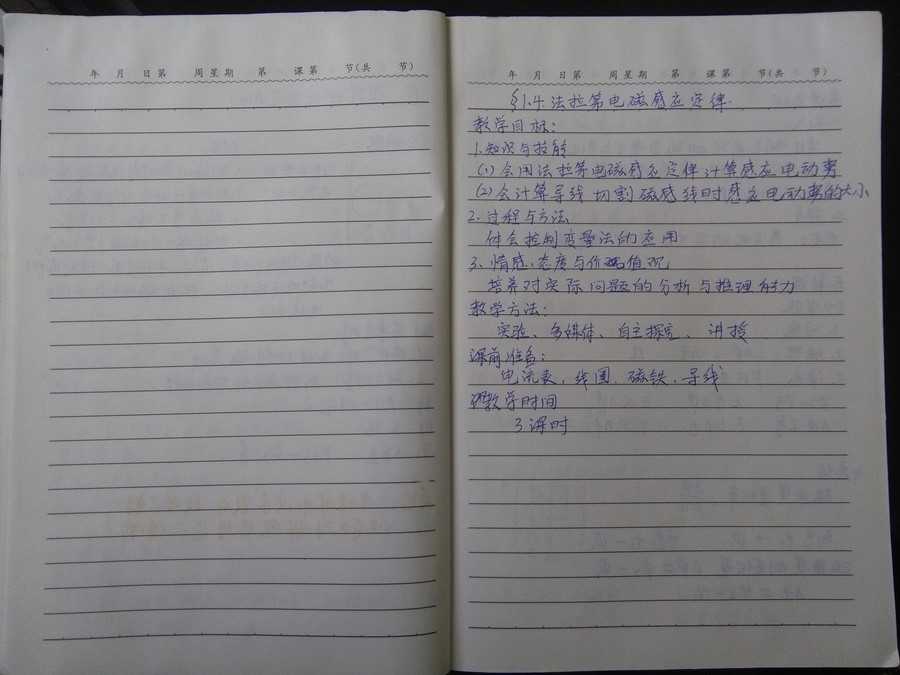 年 月 日第 周星期 第 课第 节(共 节)
年 月 日第 周星期 第 课第 节(共 节)
§1.4 法拉第电磁感应定律.
教学目标:
1.知识与技能
(1)会用法拉第电磁感应定律计算感应电动势
(2)会计算导线切割磁感线时感应电动势的大小
2.过程与方法
体会控制变量法的应用
3.情感、态度与价值观
培养对实际问题的分析与推理能力
教学方法:
实验、多媒体、自主探究、讲授
课前准备:
电流表、线圈、磁铁、导线
教学时间
3课时